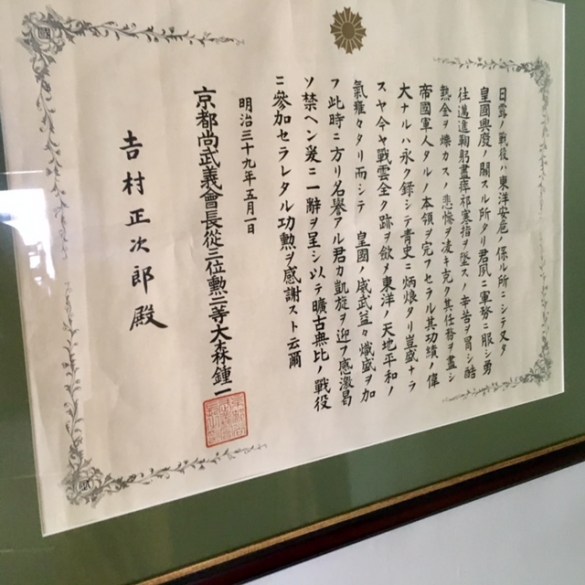 日露ノ戰役ハ東洋安危ノ係ル所ニシテ又タ
皇國興廢ノ關スル所タリ君夙ニ軍務ニ服シ勇
往邁進鞠躬盡瘁祁寒指ヲ墜スノ辛苦ヲ冒シ酷
熱金ヲ爍カスノ悲慘ヲ凌キ克ク其任務ヲ盡シ
帝國軍人タルノ本領ヲ完フセラル其功績ノ偉
大ナルハ永ク錄シテ靑史ニ炳煥タリ豈盛ナラ
スヤ今ヤ戰雲全ク跡ヲ斂メ東洋ノ天地平和ノ
氣靄々タリ而シテ 皇國ノ威武益々熾盛ヲ加
フ此時ニ方リ名譽アル君カ凱旋ヲ迎フ感激曷
ソ禁ヘン爰ニ一辭ヲ呈シ以テ曠古無比ノ戰役
ニ參加セラレタル功勲ヲ感謝スト云爾
明治三十九年五月一日
京都尚武義會長從三位勲二等大森鍾一
吉村正次郎殿